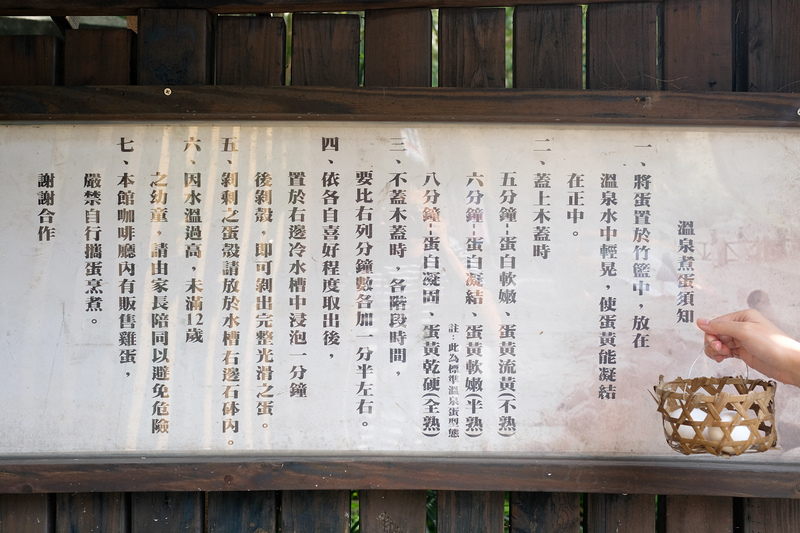 溫泉煮蛋須知
一、將蛋置於竹籃中，放在
溫泉水中輕晃，使蛋黃能凝結
在正中。
二、蓋上木蓋時
五分鐘--蛋白軟嫩、蛋黃流黃(不熟)
六分鐘--蛋白凝結、蛋黃軟嫩(半熟)
註：此為標準溫泉蛋型態
八分鐘--蛋白凝固、蛋黃乾硬(全熟)
三、不蓋木蓋時，各階段時間，
要比右列分鐘數各加一分半左右。
四、依各自喜好程度取出後，
置於右邊冷水槽中浸泡一分鐘
後剝殼，即可剝出完整光滑之蛋。
五、剝剩之蛋殼請放於水槽右邊石砵內。
六、因水溫過高，未滿12歲
之幼童，請由家長陪同以避免危險
七、本館咖啡廳內有販售雞蛋，
嚴禁自行攜蛋烹煮。
謝謝合作